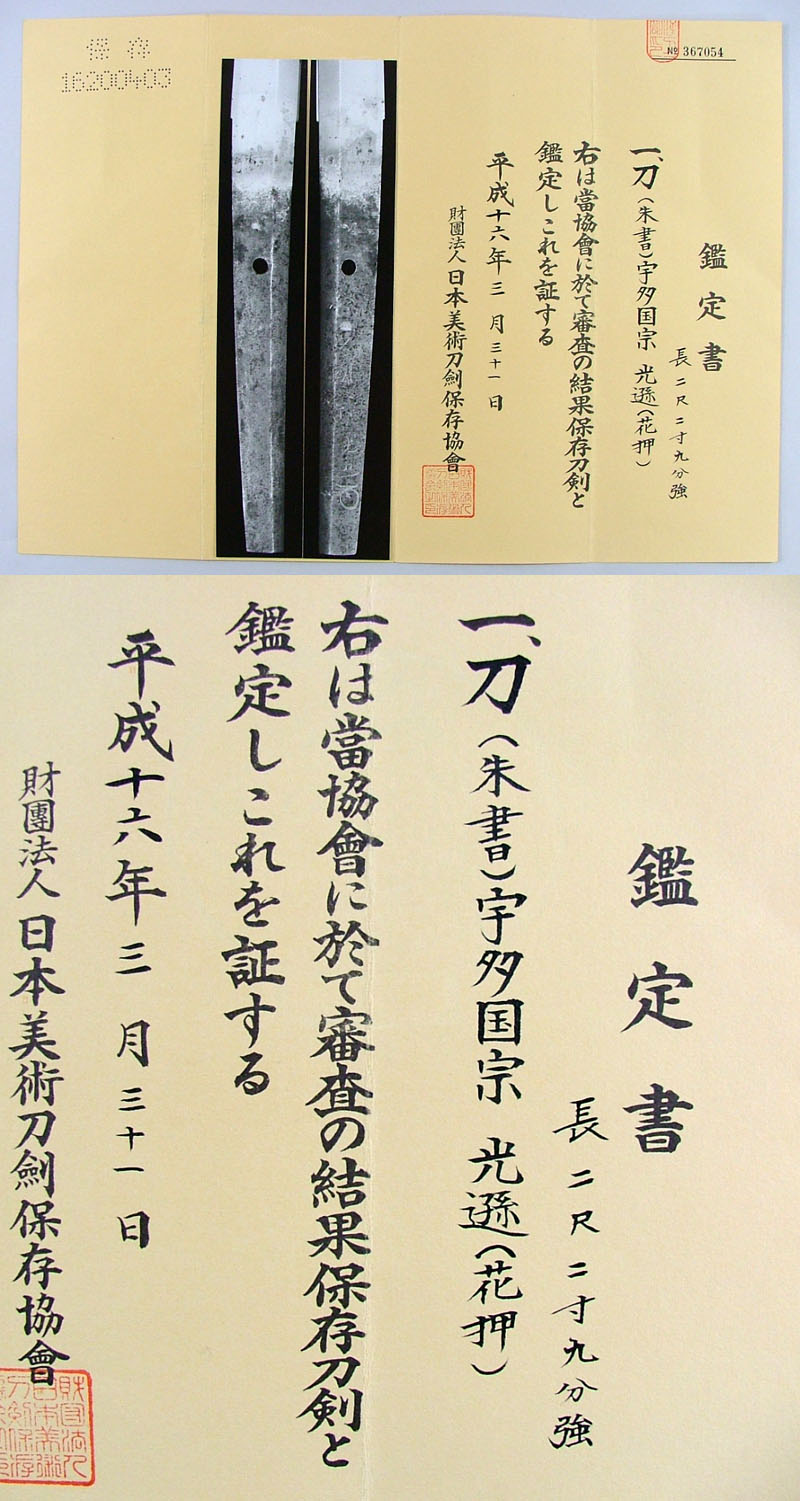 保存
16200403
№ 367054
鑑定書
長二尺二寸九分強
一、刀（朱書）宇多国宗 光遜（花押）
右は當協會に於て審査の結果保存刀剣と
鑑定しこれを証する
平成十六年三月三十一日
財團法人日本美術刀劍保存協會
鑑定書
長二尺二寸九分強
一、刀（朱書）宇多国宗 光遜（花押）
右は當協會に於て審査の結果保存刀剣と
鑑定しこれを証する
平成十六年三月三十一日
財團法人日本美術刀劍保存協會